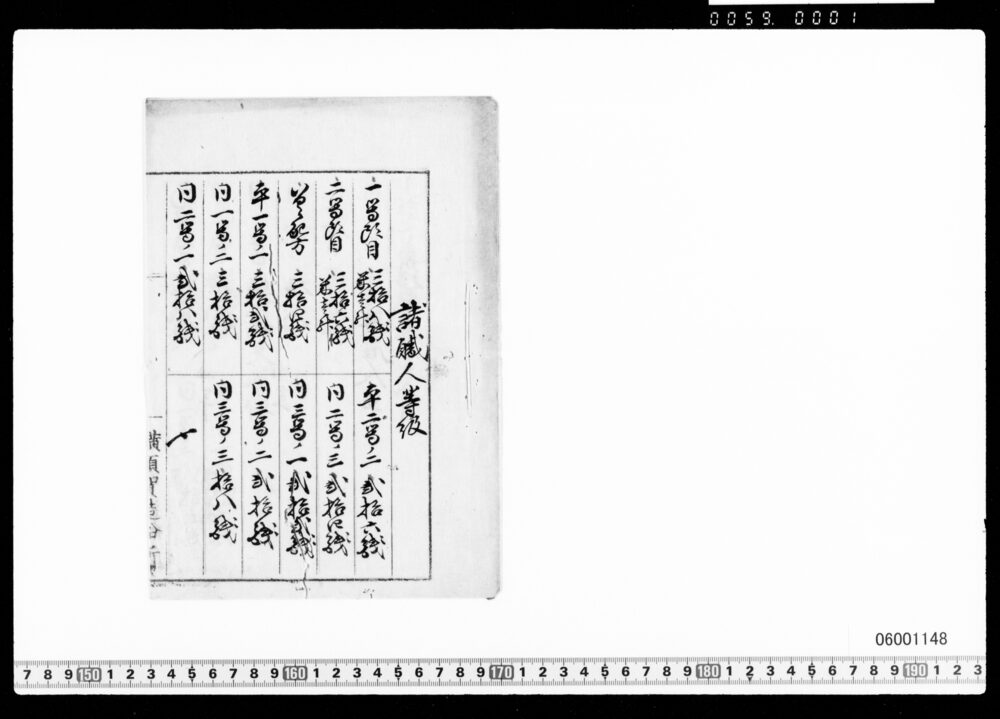 0059. 0001
諸職人等級
一等頭目 三拾八銭
二等頭目 三拾六銭
三拾四銭
平一等ノ一 三拾弐銭
同一等ノ二 三拾銭
同二等ノ一 弐拾八銭
平二等ノ二 弐拾六銭
同二等ノ三 弐拾四銭
同三等ノ一 弐拾弐銭
同三等ノ二 弐拾銭
同三等ノ三 拾八銭
横須賀造船所
06001148
7 8 9 150 1 2 3 4 5 6 7 8 9 160 1 2 3 4 5 6 7 8 9 170 1 2 3 4 5 6 7 8 9 180 1 2 3 4 5 6 7 8 9 190 1 2 3